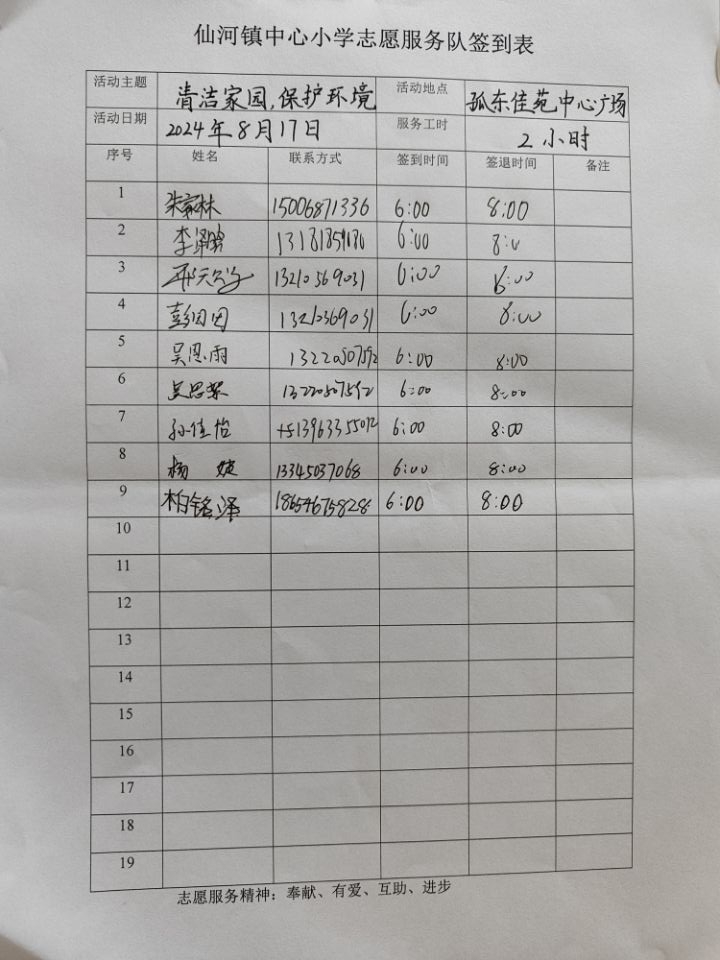 仙河镇中心小学志愿服务队签到表
活动主题 清洁家园,保护环境 活动地点 孤东佳苑中心广场
活动日期 2024年8月17日 服务工时 2小时
序号 姓名 联系方式 签到时间 签退时间 备注
1 张家林 15006871336 6:00 8:00
2 李 6:00 8:0
3 13210369031 6:00 8:00
4 彭囡囡 13210369031 6:00 8:00
5 吴恩雨 13220507592 6:00 8:00
6 吴思 13220507592 6:00 8:00
7 孙佳怡 6:00 8:00
8 杨婕 13345037068 6:00 8:00
9 柏铭泽 18654675828 6:00 8:00
10
11
12
13
14
15
16
17
18
19
志愿服务精神：奉献、有爱、互助、进步